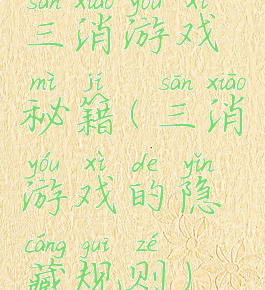 sān xiāo yóu xì
三消游戏
mì jí sān xiāo
秘籍(三消
yóu xì de yǐn
游戏的隐
cáng guī zé
藏规则)